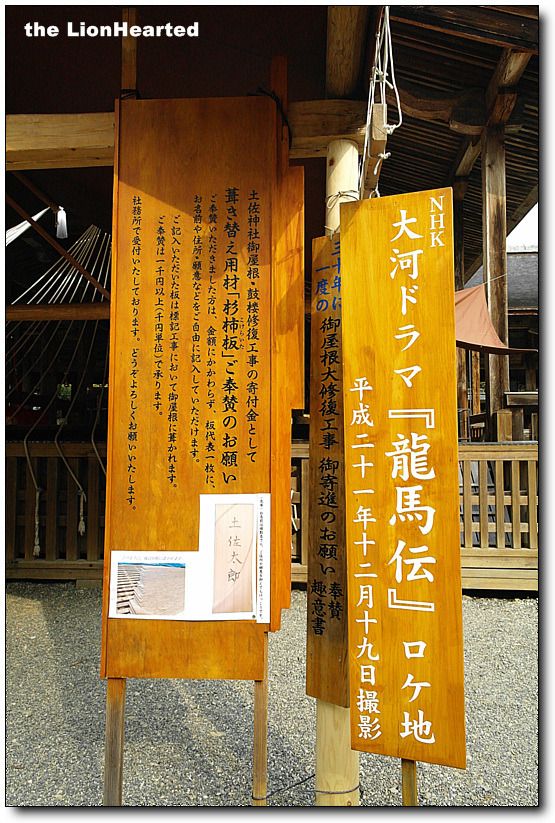 the LionHearted
NHK
大河ドラマ『龍馬伝』ロケ地
平成二十一年十二月十九日撮影
三十年に
一度の
御屋根大修復工事 御寄進のお願い
奉賛
趣意書
土佐神社御屋根・鼓楼修復工事の寄付金として
葺き替え用材「杉柿板」ご奉賛のお願い
こけらいた
ご奉賛いただきました方は、金額にかかわらず、板代表一枚に、
お名前や住所・願意などをご自由に記入していただけます。
ご記入いただいた板は標記工事において御屋根に葺かれます。
ご奉賛は一千円以上（千円単位）で承ります。
社務所で受付いたしております。どうぞよろしくお願いいたします。
土佐太郎